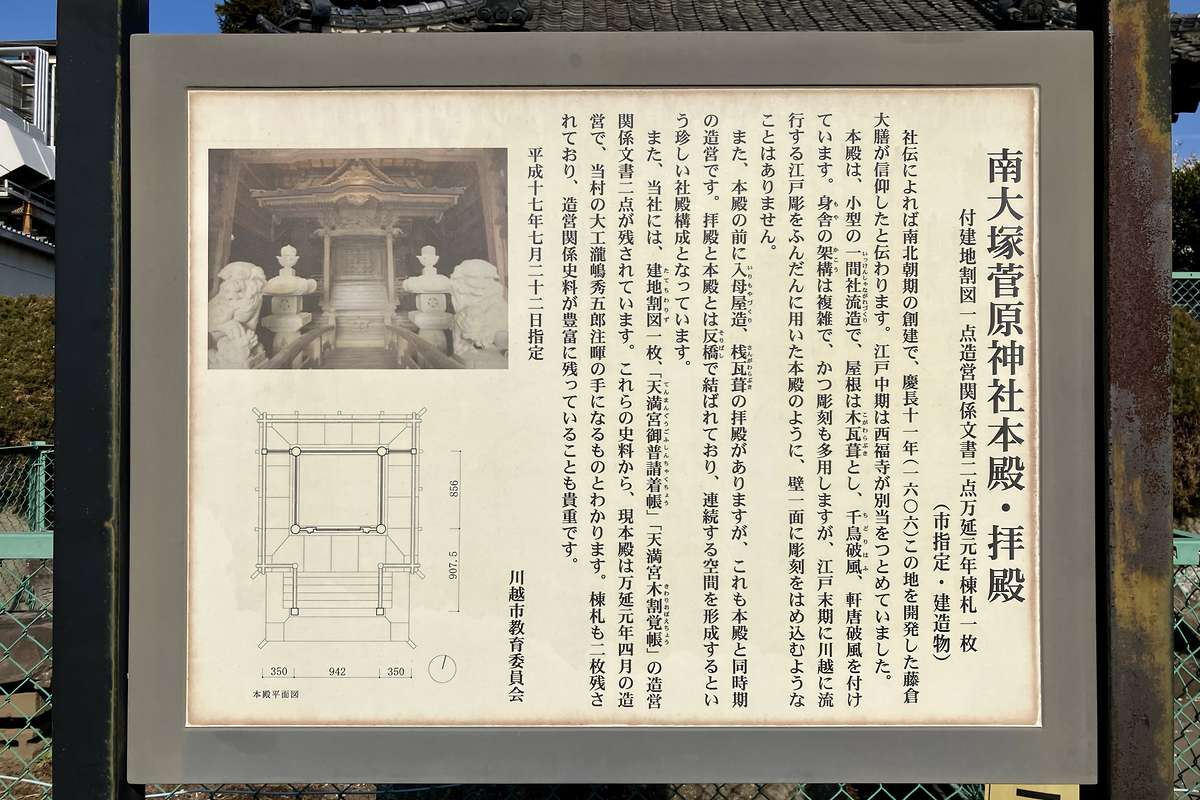 南大塚菅原神社本殿・拝殿
付建地割図一点造営関係文書二点万延元年棟札一枚
（市指定・建造物）
社伝によれば南北朝期の創建で、慶長十一年（一六〇六）この地を開発した藤倉
大膳が信仰したと伝わります。江戸中期は西福寺が別当をつとめていました。
本殿は、小型の一間社流造で、屋根は木瓦葺とし、千鳥破風、軒唐破風を付け
ています。身舎の架構は複雑で、かつ彫刻も多用しますが、江戸末期に川越に流
行する江戸彫をふんだんに用いた本殿のように、壁一面に彫刻をはめ込むような
ことはありません。
また、本殿の前に入母屋造、桟瓦葺の拝殿がありますが、これも本殿と同時期
の造営です。拝殿と本殿とは反橋で結ばれており、連続する空間を形成するとい
う珍しい社殿構成となっています。
また、当社には、建地割図一枚、「天満宮御普請着帳」「天満宮木割覚帳」の造営
関係文書二点が残されています。これらの史料から、現本殿は万延元年四月の造
営で、当村の大工瀧嶋秀五郎注暉の手になるものとわかります。棟札も二枚残さ
れており、造営関係史料が豊富に残っていることも貴重です。
平成十七年七月二十二日指定
川越市教育委員会
856
907.5
350 942 350
本殿平面図